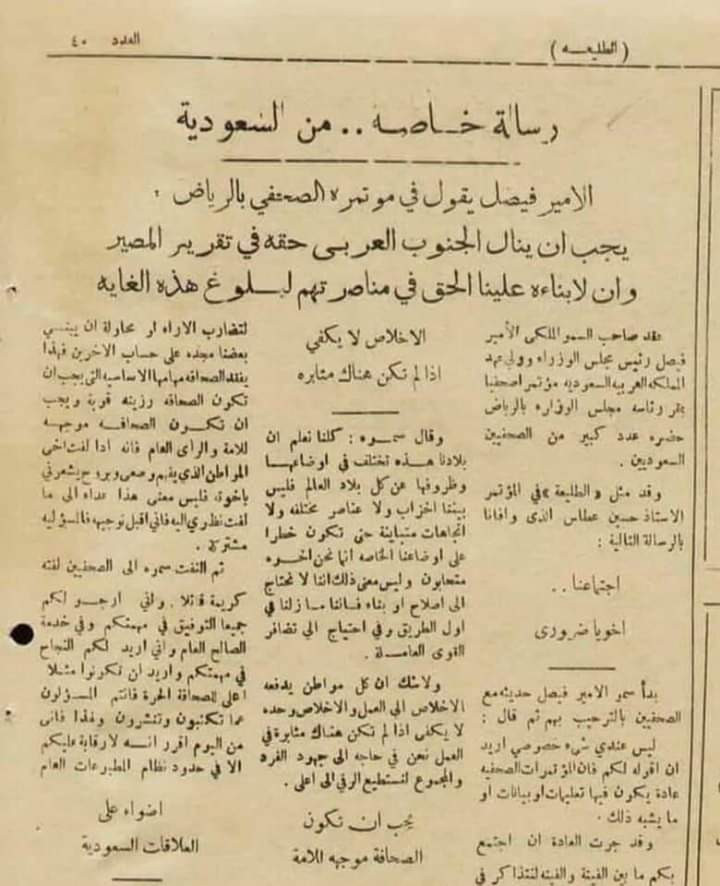 العدد ٤٠
( الطليعــه )
رسالة خــاصــه .. من السعودية
الامير فيصل يقول في موتمره الصحفي بالرياض :
يجب ان ينال الجنوب العربى حقه في تقرير المصير
وان لابناءه علينا الحق في مناصرتهم لبلــوغ هذه الغايه
عقد صاحب السمو الملكى الأمير
فيصل رئيس مجلس الوزراء وولي عهد
المملكه العربيه السعوديه مؤتمر اصحفيا
بمقر رئاسه مجلس الوزاره بالرياض
حضره عدد كبير من الصحفيين
السعوديين .
وقد مثل «الطليعة» في المؤتمر
الاستاذ حسين عطاس الذى وافانا
بالرسالة التالية :
اجتماعنا ..
اخويا ضرورى
بدأ سمو الامير فيصل حديثه مع
الصحفين بالترحيب بهم ثم قال :
ليس عندي شىء خصوصي اريد
ان اقوله لكم فان المؤتمرات الصحفيه
عادة يكون فيها تعليمات او بيانات او
ما يشبه ذلك .
وقد جرت العادة ان اجتمع
بكم ما بين الفينة والفينه لنتذاكر في
الاخلاص لا يكفي
اذا لم تكن هناك مثابره
وقال سمــوه : كلنا نعلم ان
بلادنا هــذه تختلف في اوضاعهــا
وظروفها عن كل بلاد العالم فليس
بيننا احزاب ولا عناصر مختلفه ولا
اتجاهات متباينة حتى تكون خطرا
على اوضاعنا الخاصه انما نحن اخــوه
متحابون وليس معنى ذلك اننا لا نحتاج
الى اصلاح او بناء فــاننا مــا زلنا في
اول الطريق وفي احتياج الى تضافر
القوى العامــلة .
ولاشك ان كل مواطن يدفعه
الاخلاص الى العمل والاخلاص وحده
لا يكفى اذا لم تكن هناك مثابرة في
العمل نحن في حاجه الى جهود الفرد
والمجموع لنستطيع الرقي الى اعلى .
يجب ان تكون
الصحافة موجهه للامة
لتضارب الاراء او محاولة ان يبنــي
بعضنا مجده على حساب الآخرين فهذا
يفقد الصحافه مهامها الاساسيه التى يجب ان
تكون الصحافه رزينه قوية ويجب
ان تكــون الصحافــه موجهــه
للامة والرأى العام فانه اذا لفت اخى
المواطن الذي يفهم وضعى وبروح يشعرني
باخوة، فليس معنى هذا عداء الى ما
لفت نظري اليه فاني اقبل توجيهه فالمسؤليه
مشتركة .
ثم التفت سموه الى الصحفيين لفتة
كريمة قائلا . واني ارجــو لكم
جميعا التوفيق في مهمتكم وفي خدمة
الصالح العام واني اريد لكم النجاح
في مهمتكم واريد ان تكونوا مثــلا
اعلى للصحافة الحرة فانتم المسؤلون
عما تكتبون وتنشرون ولهذا فانى
من اليوم اقرر انــه لارقابة عليكم
الا في حدود نظام المطبوعات العام
اضواء على
العلاقات السعودية